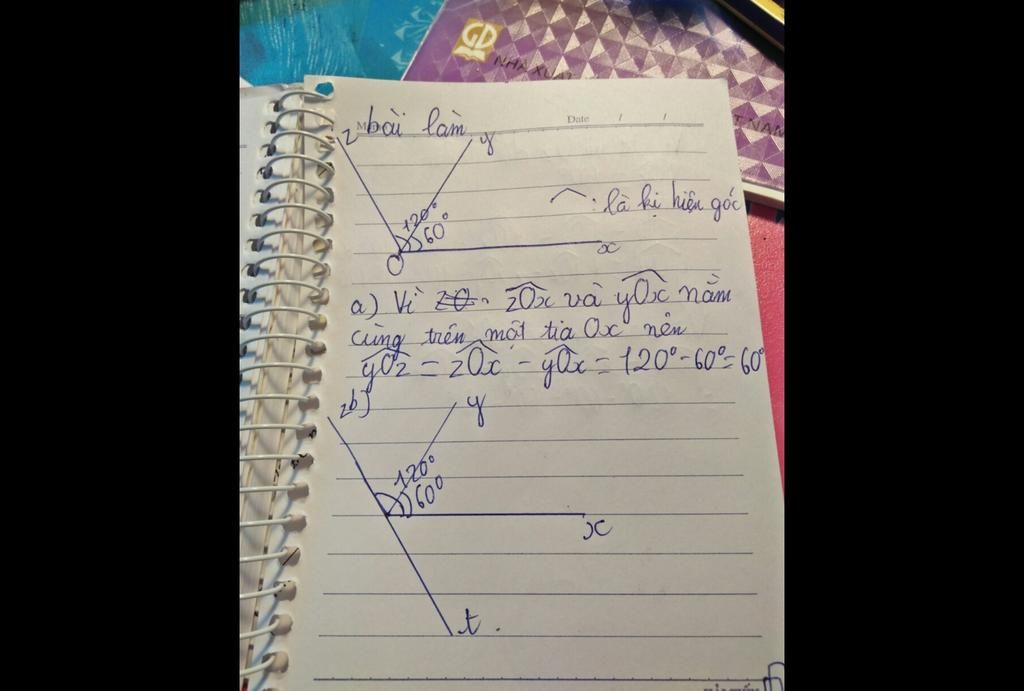 GD
NHÀ XUẤT
T NAM
bài làm
Date / /
z
y
120°
60°
O
x
⌒: là kị hiện góc
a) Vì zOx và yOx nằm
cùng trên một tia Ox nên
yOz = zOx - yOx = 120° - 60° = 60°
b)
z
y
120°
60°
x
t